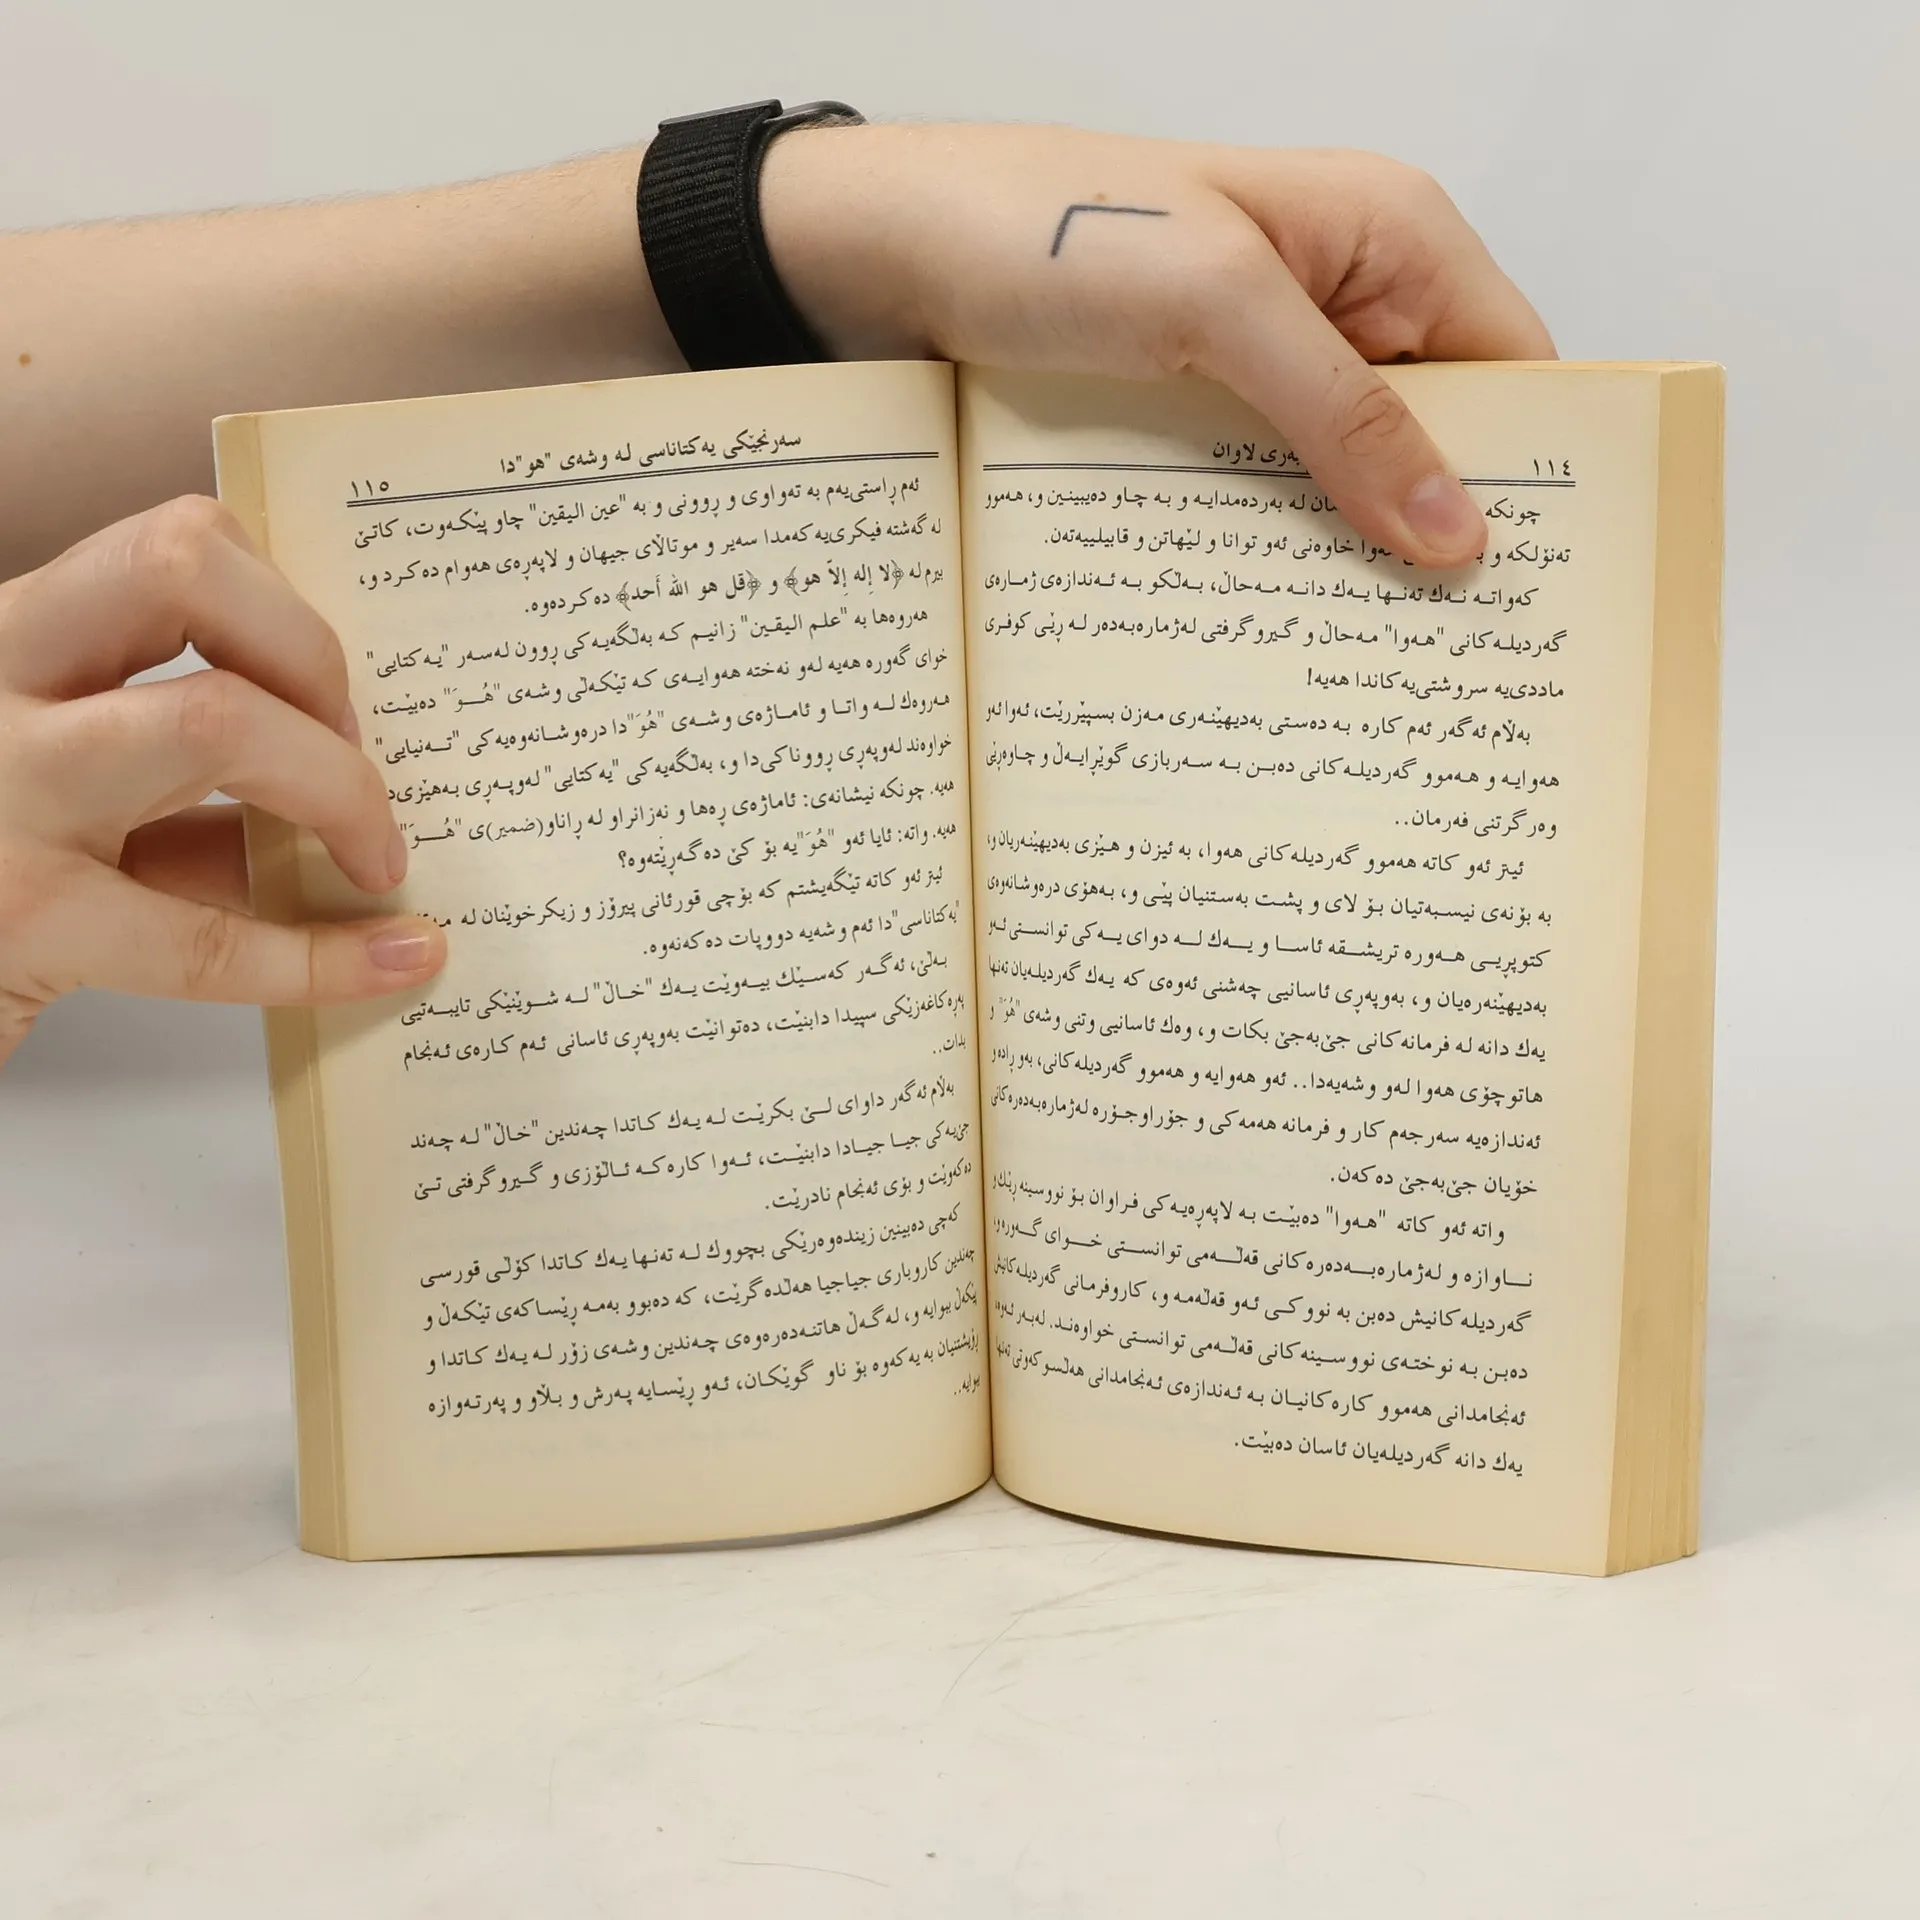 ١١٤
بەری لاوان
چونکە سان لە بەردەمدایە و بە چاو دەیبینین و، هەموو
تەنۆلکە و ئەوا خاوەنی ئەو توانا و لێهاتن و قابیلییەتەن.
کەواتە نەك تەنها یەك دانە مەحاڵ، بەڵکو بە ئەندازەی ژمارەی
گەردیلەکانی "هەوا" مەحاڵ و گیروگرفتی لەژمارەبەدەر لە ڕێی کوفری
ماددی‌یە سروشتی‌یەکاندا هەیە!
بەڵام ئەگەر ئەم کارە بە دەستی بەدیهێنەری مەزن بسپێررێت، ئەوا ئەو
هەوایە و هەموو گەردیلەکانی دەبن بە سەربازی گوێڕایەڵ و چاوەڕێی
وەرگرتنی فەرمان..
ئیتر ئەو کاتە هەموو گەردیلەکانی هەوا، بە ئیزن و هێزی بەدیهێنەریان و،
بە بۆنەی نیسبەتیان بۆ لای و پشت بەستنیان پێی و، بەهۆی درەوشانەوەی
کتوپڕیی هەورە تریشقە ئاسا و یەك لە دوای یەکی توانستی ئەو
بەدیهێنەرەیان و، بەوپەڕی ئاسانیی چەشنی ئەوەی کە یەك گەردیلەیان تەنها
یەك دانە لە فرمانەکانی جێ‌بەجێ بکات و، وەك ئاسانیی وتنی وشەی "هُوَ" و
هاتوچۆی هەوا لەو وشەیەدا.. ئەو هەوایە و هەموو گەردیلەکانی، بەو ڕادە و
ئەندازەیە سەرجەم کار و فرمانە هەمەکی و جۆراوجۆرە لەژمارەبەدەرەکانی
خۆیان جێ‌بەجێ دەکەن.
واتە ئەو کاتە "هەوا" دەبێت بە لاپەڕەیەکی فراوان بۆ نووسینە ڕێك و
ناوازە و لەژمارەبەدەرەکانی قەڵەمی توانستی خوای گەورە و،
گەردیلەکانیش دەبن بە نووکی ئەو قەڵەمە و، کاروفرمانی گەردیلەکانیش
دەبن بە نوختەی نووسینەکانی قەڵەمی توانستی خواوەند. لەبەر ئەوە،
ئەنجامدانی هەموو کارەکانیان بە ئەندازەی ئەنجامدانی هەڵسوکەوتی تەنها
یەك دانە گەردیلەیان ئاسان دەبێت.
سەرنجێکی یەکتاناسی لە وشەی "هو"دا
١١٥
ئەم ڕاستی‌یەم بە تەواوی و ڕوونی و بە "عین الیقین" چاو پێکەوت، کاتێ
لە گەشتە فیکری‌یەکەمدا سەیر و موتاڵای جیهان و لاپەڕەی هەوام دەکرد و،
بیرم لە ﴿لا إله إلاّ هو﴾ و ﴿قل هو الله أحد﴾ دەکردەوە.
هەروەها بە "علم الیقین" زانیم کە بەڵگەیەکی ڕوون لەسەر "یەکتایی"
خوای گەورە هەیە لەو نەختە هەوایەی کە تێکەڵی وشەی "هُوَ" دەبێت،
هەروەك لە واتا و ئاماژەی وشەی "هُوَ"دا درەوشانەوەیەکی "تەنیایی"
خواوەند لەوپەڕی ڕووناکی‌دا و، بەڵگەیەکی "یەکتایی" لەوپەڕی بەهێزی‌د
هەیە. چونکە نیشانەی: ئاماژەی ڕەها و نەزانراو لە ڕاناو(ضمیر)ی "هُوَ"
هەیە. واتە: ئایا ئەو "هُوَ"یە بۆ کێ دەگەڕێتەوە؟
ئیتر ئەو کاتە تێگەیشتم کە بۆچی قورئانی پیرۆز و زیکرخوێنان لە
"یەکتاناسی"دا ئەم وشەیە دووپات دەکەنەوە.
بەڵێ، ئەگەر کەسێك بیەوێت یەك "خاڵ" لە شوێنێکی تایبەتیی
پەڕەکاغەزێکی سپیدا دابنێت، دەتوانێت بەوپەڕی ئاسانی ئەم کارەی ئەنجام
بدات..
بەڵام ئەگەر داوای لێ بکرێت لە یەك کاتدا چەندین "خاڵ" لە چەند
جێ‌یەکی جیا جیادا دابنێت، ئەوا کارەکە ئاڵۆزی و گیروگرفتی تێ
دەکەوێت و بۆی ئەنجام نادرێت.
کەچی دەبینین زیندەوەرێکی بچووك لە تەنها یەك کاتدا کۆڵی قورسی
چەندین کاروباری جیاجیا هەڵدەگرێت، کە دەبوو بەمە ڕێساکەی تێکەڵ و
پێکەڵ ببوایە و، لەگەڵ هاتنەدەرەوەی چەندین وشەی زۆر لە یەك کاتدا و
ڕۆیشتنیان بە یەکەوە بۆ ناو گوێکان، ئەو ڕێسایە پەرش و بڵاو و پەرتەوازە
ببوایە..